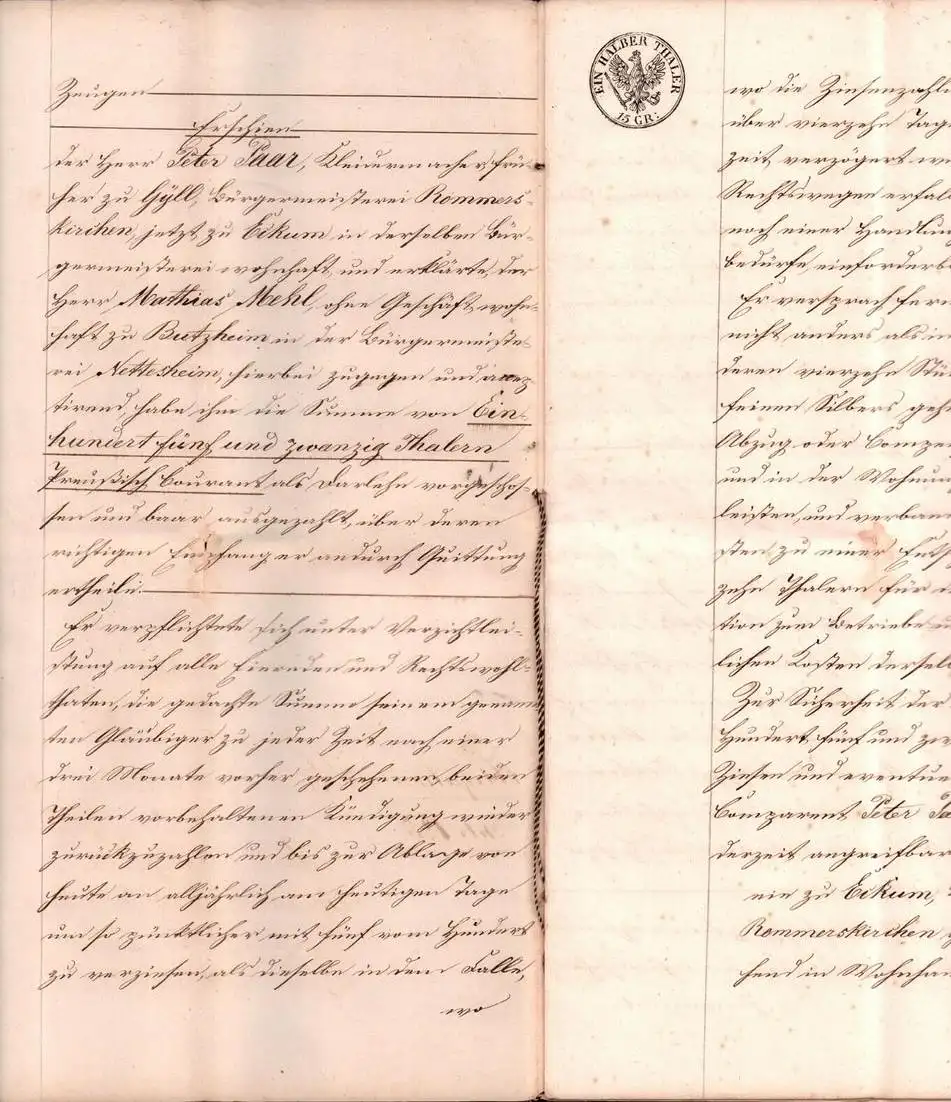 Zeugen
Erschien
der Herr Peter Paar, Kleidermacher, frü-
her zu Gyll, Bürgermeisterei Rommers-
kirchen, jetzt zu Eckum in derselben Bür-
germeisterei wohnhaft, und erklärte, der
Herr Mathias Mehl, ohne Geschäft, wohn-
haft zu Butzheim in der Bürgermeiste-
rei Nettesheim, hierbei zugegen und accep-
tirend, habe ihm die Summe von Ein-
hundert fünf und zwanzig Thalern
Preußisch Courant als Darlehn vorgeschos-
sen und baar ausgezahlt, über deren
richtigen Empfang er andurch Quittung
ertheile.
Er verpflichtete sich unter Verzichtlei-
stung auf alle Einreden und Rechtswohl-
thaten, die gedachte Summe seinem genann-
ten Gläubiger zu jeder Zeit nach einer
drei Monate vorher geschehenen, beiden
Theilen vorbehaltenen Kündigung wieder
zurückzuzahlen und bis zur Ablage von
heute an alljährlich am heutigen Tage
um so pünktlicher mit fünf vom Hundert
zu verzinsen, als dieselbe in dem Falle,
wo
EIN HALBER THALER
15 GR:
wo die Zinsenzahlu
über vierzehn Tage
zeit verzögert we
Rechtswegen erfal
noch einer Handlun
bedürfe, einforderba
Er versprach fern
nicht anders als in
deren vierzehn Stü
feinen Silbers geh
Abzug oder Compen
und in der Wohnun
leisten, und verban
sten zu einer Ents
zehn Thalern für
tion zum Betriebe
lichen Kosten dersel
Zur Sicherheit der
Hundert fünf und zwa
Zinsen und eventue
Comparent Peter Pa
derzeit angreifbar
ein zu Eckum,
Rommerskirchen
hend in Wohnha